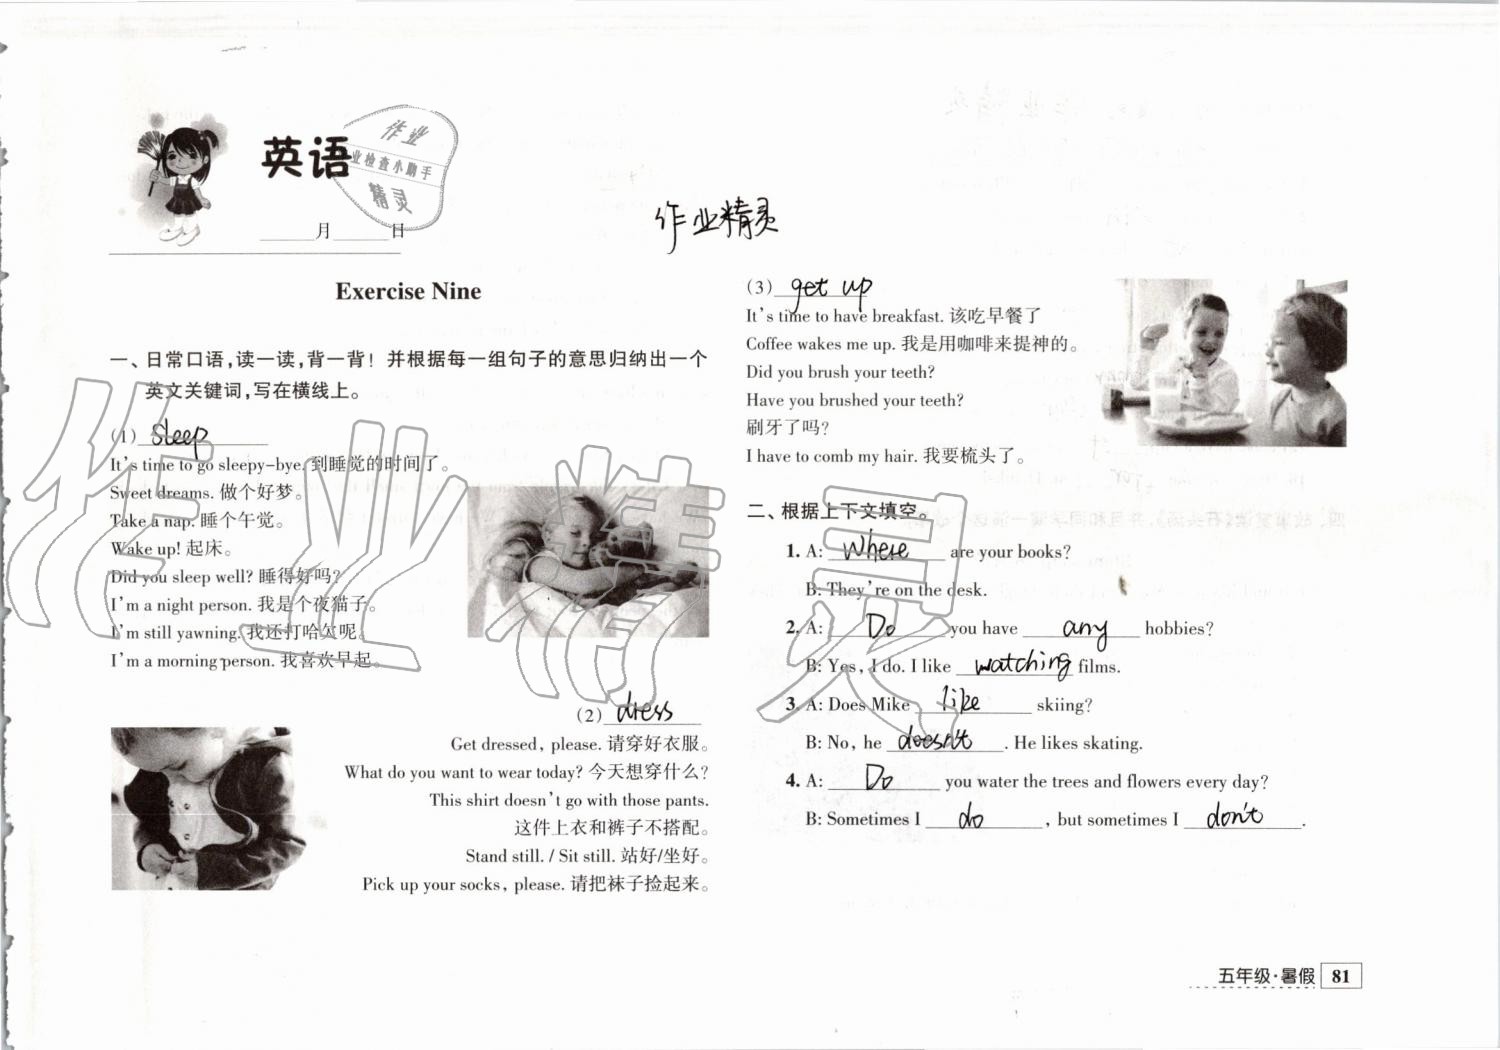 英语
作业
业检查小助手
精灵
月 日
作业精灵
Exercise Nine
一、日常口语,读一读,背一背! 并根据每一组句子的意思归纳出一个
英文关键词,写在横线上。
(1) sleep
It's time to go sleepy-bye. 到睡觉的时间了。
Sweet dreams. 做个好梦。
Take a nap. 睡个午觉。
Wake up! 起床。
Did you sleep well? 睡得好吗?
I'm a night person. 我是个夜猫子。
I'm still yawning. 我还打哈欠呢。
I'm a morning person. 我喜欢早起。
(2) dress
Get dressed, please. 请穿好衣服。
What do you want to wear today? 今天想穿什么?
This shirt doesn't go with those pants.
这件上衣和裤子不搭配。
Stand still. / Sit still. 站好/坐好。
Pick up your socks, please. 请把袜子捡起来。
(3) get up
It's time to have breakfast. 该吃早餐了
Coffee wakes me up. 我是用咖啡来提神的。
Did you brush your teeth?
Have you brushed your teeth?
刷牙了吗?
I have to comb my hair. 我要梳头了。
二、根据上下文填空。
1. A: Where are your books?
B: They're on the desk.
2. A: Do you have any hobbies?
B: Yes, I do. I like watching films.
3. A: Does Mike like skiing?
B: No, he doesn't. He likes skating.
4. A: Do you water the trees and flowers every day?
B: Sometimes I do, but sometimes I don't.
五年级·暑假 81
作业精灵